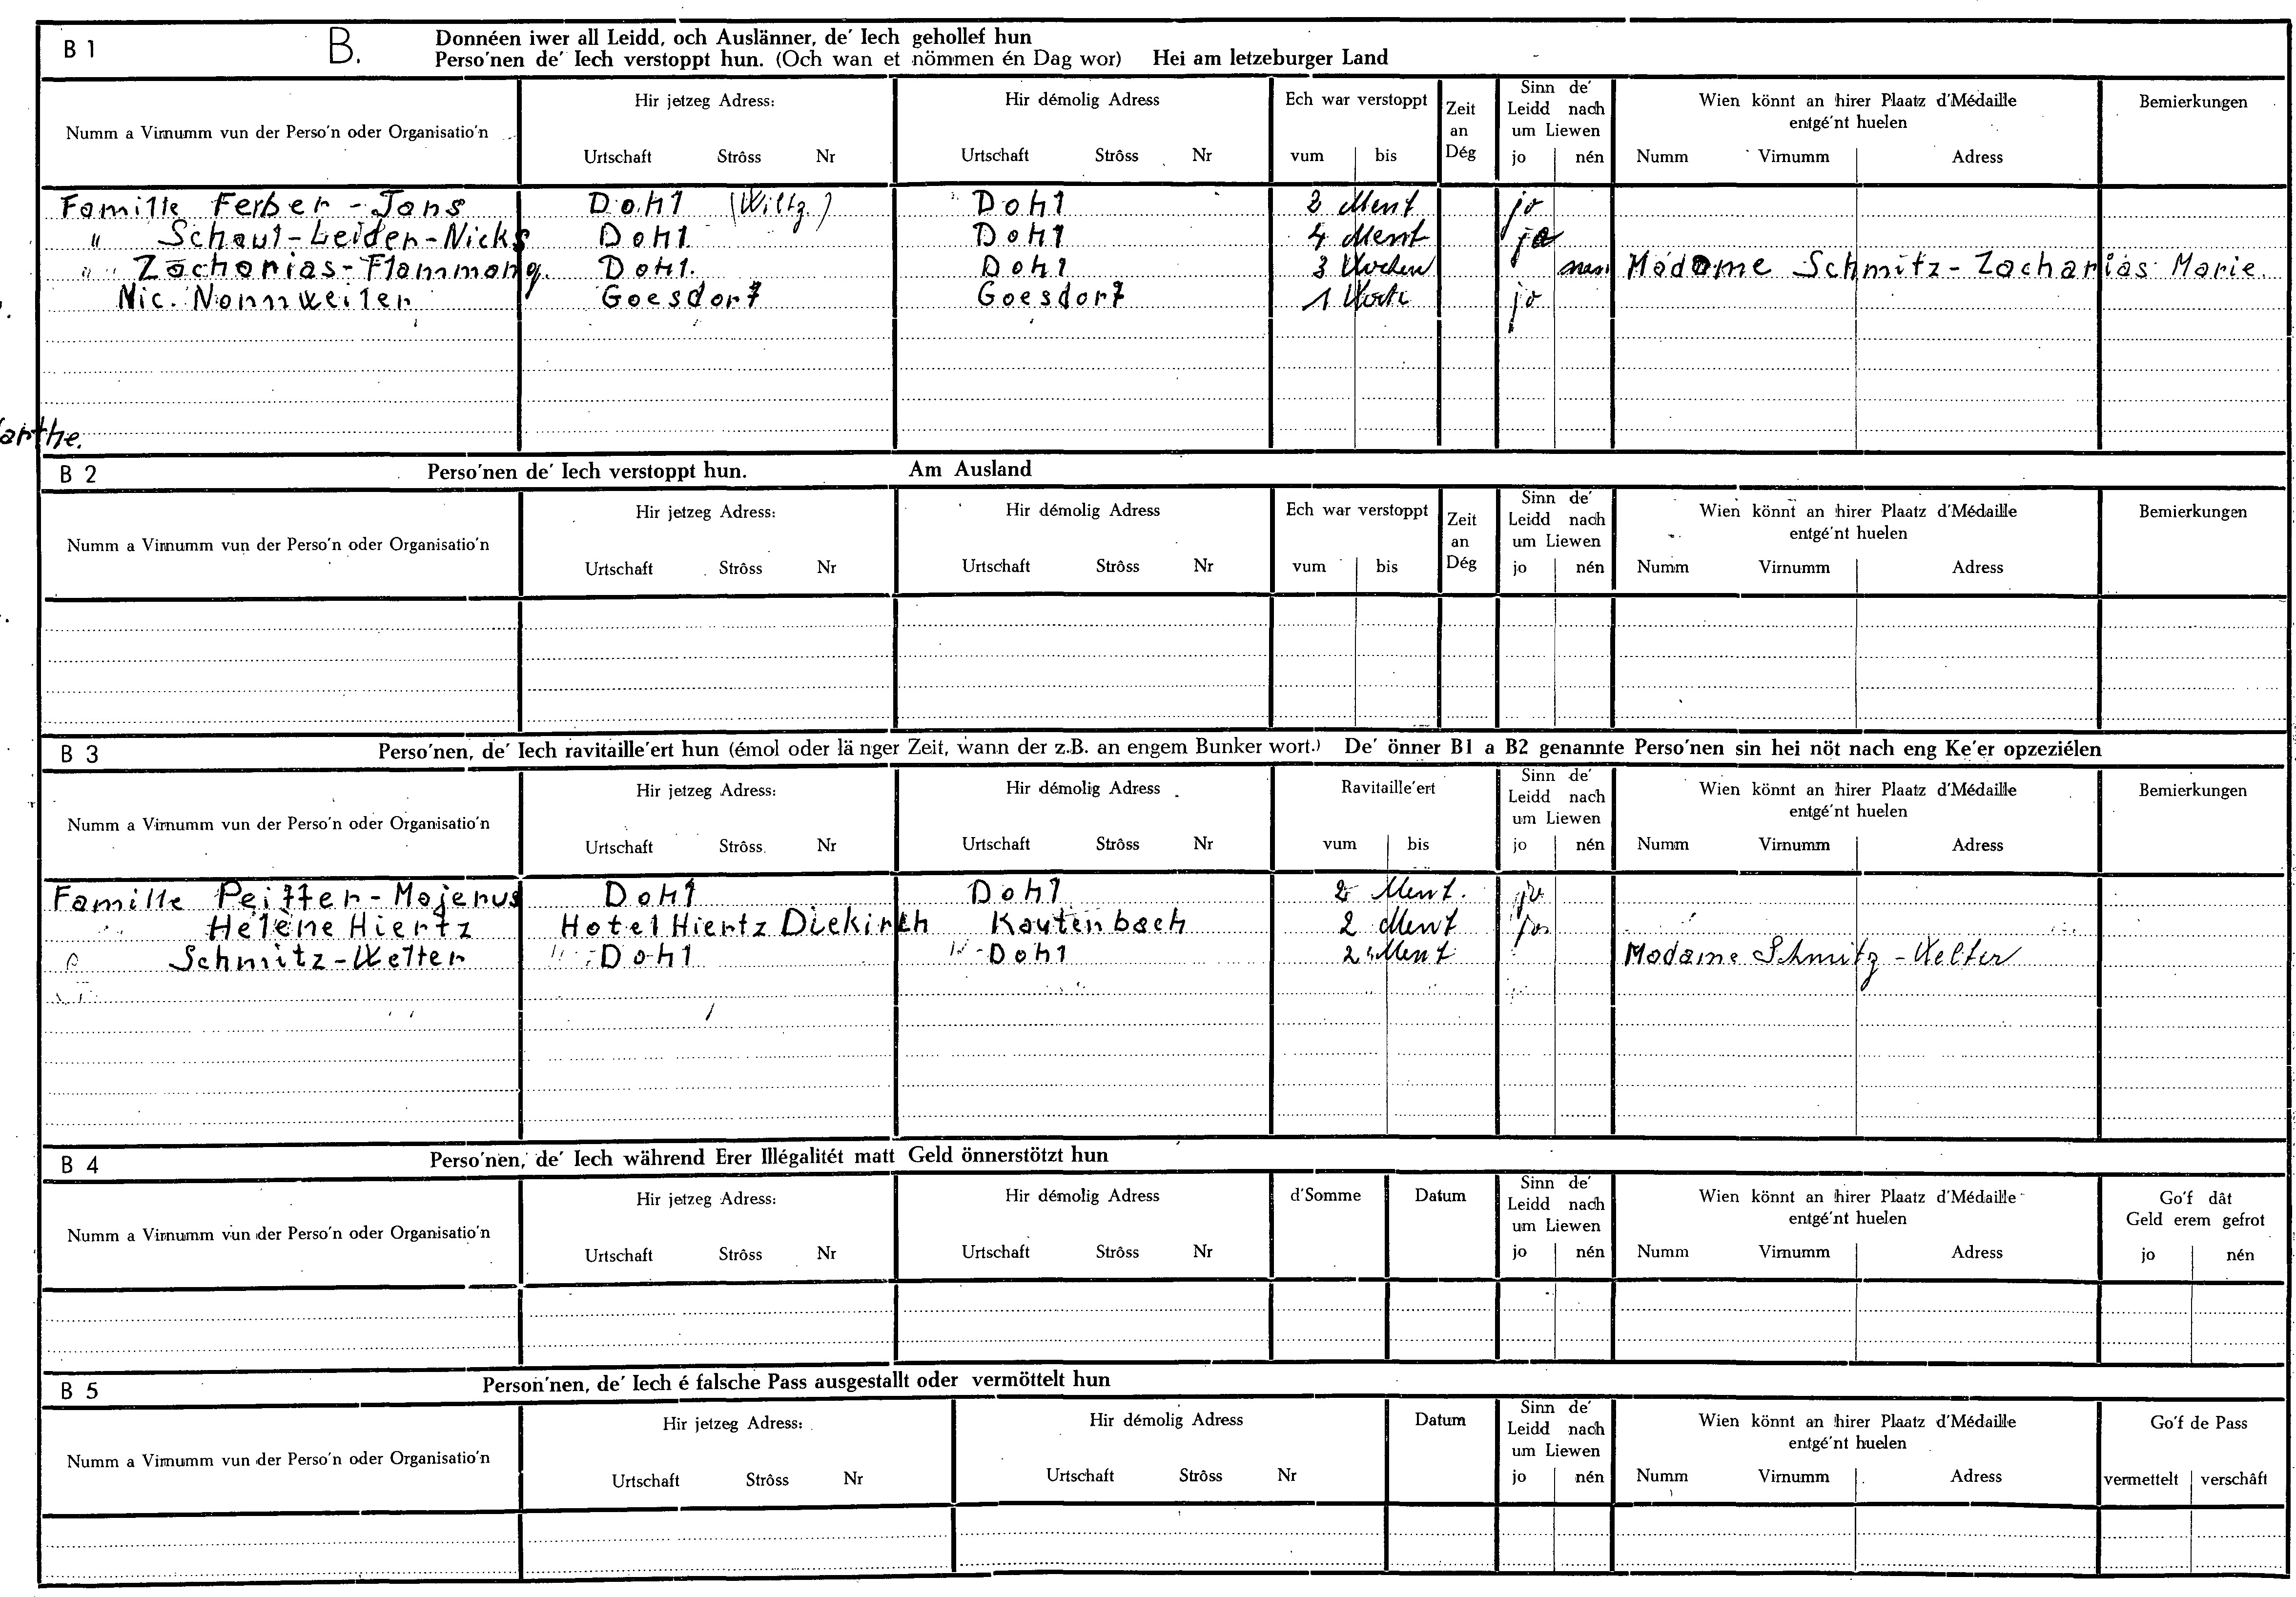 B 1 B. Donnéen iwer all Leidd, och Auslänner, de' Iech gehollef hun
Perso'nen de' Iech verstoppt hun. (Och wan et nömmen én Dag wor) Hei am letzeburger Land
Numm a Virnumm vun der Perso'n oder Organisatio'n
Hir jetzeg Adress:
Urtschaft Strôss Nr
Hir démolig Adress
Urtschaft Strôss Nr
Ech war verstoppt
vum bis
Zeit
an
Dég
Sinn de'
Leidd nach
um Liewen
jo nén
Wien könnt an hirer Plaatz d'Médaille
entgé'nt huelen
Numm Virnumm Adress
Bemierkungen
Famille Ferber - Jans Dohl (Wiltz.) Dohl 2 Ment jo
" Schaul-Leider-Nicks Dohl Dohl 4 Ment jo
" Zacharias-Flammang. Dohl. Dohl 3 Wochen nen Madame Schmitz-Zacharias Marie.
Nic. Nonnweiler Goesdorf Goesdorf 1 Woch jo
arthe.
B 2 Perso'nen de' Iech verstoppt hun. Am Ausland
Numm a Virnumm vun der Perso'n oder Organisatio'n
Hir jetzeg Adress:
Urtschaft Strôss Nr
Hir démolig Adress
Urtschaft Strôss Nr
Ech war verstoppt
vum bis
Zeit
an
Dég
Sinn de'
Leidd nach
um Liewen
jo nén
Wien könnt an hirer Plaatz d'Médaille
entgé'nt huelen
Numm Virnumm Adress
Bemierkungen
B 3 Perso'nen, de' Iech ravitaille'ert hun (émol oder länger Zeit, wann der z.B. an engem Bunker wort.) De' önner B1 a B2 genannte Perso'nen sin hei nöt nach eng Ke'er opzeziélen
Numm a Virnumm vun der Perso'n oder Organisatio'n
Hir jetzeg Adress:
Urtschaft Strôss Nr
Hir démolig Adress
Urtschaft Strôss Nr
Ravitaille'ert
vum bis
Sinn de'
Leidd nach
um Liewen
jo nén
Wien könnt an hirer Plaatz d'Médaille
entgé'nt huelen
Numm Virnumm Adress
Bemierkungen
Famille Peiffer-Majerus Dohl Dohl 2 Ment. jo
Hélène Hiertz Hotel Hiertz Diekirch Kautenbach 2 Ment jo
Schmitz-Welter Dohl Dohl 2 Ment Madame Schmitz-Welter
B 4 Perso'nen, de' Iech während Erer Illégalitét matt Geld önnerstötzt hun
Numm a Virnumm vun der Perso'n oder Organisatio'n
Hir jetzeg Adress:
Urtschaft Strôss Nr
Hir démolig Adress
Urtschaft Strôss Nr
d'Somme
Datum
Sinn de'
Leidd nach
um Liewen
jo nén
Wien könnt an hirer Plaatz d'Médaille
entgé'nt huelen
Numm Virnumm Adress
Go'f dât
Geld erem gefrot
jo nén
B 5 Person'nen, de' Iech é falsche Pass ausgestallt oder vermöttelt hun
Numm a Virnumm vun der Perso'n oder Organisatio'n
Hir jetzeg Adress:
Urtschaft Strôss Nr
Hir démolig Adress
Urtschaft Strôss Nr
Datum
Sinn de'
Leidd nach
um Liewen
jo nén
Wien könnt an hirer Plaatz d'Médaille
entgé'nt huelen
Numm Virnumm Adress
Go'f de Pass
vermettelt verschâft